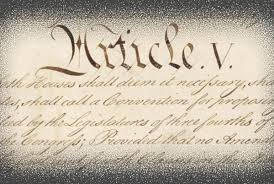 Article. V.
both Houses shall deem it necessary, sha
tes, shall call a Convention for propos
ied by the Legislatures of three fourths of
the Congress; Provided that no Amen